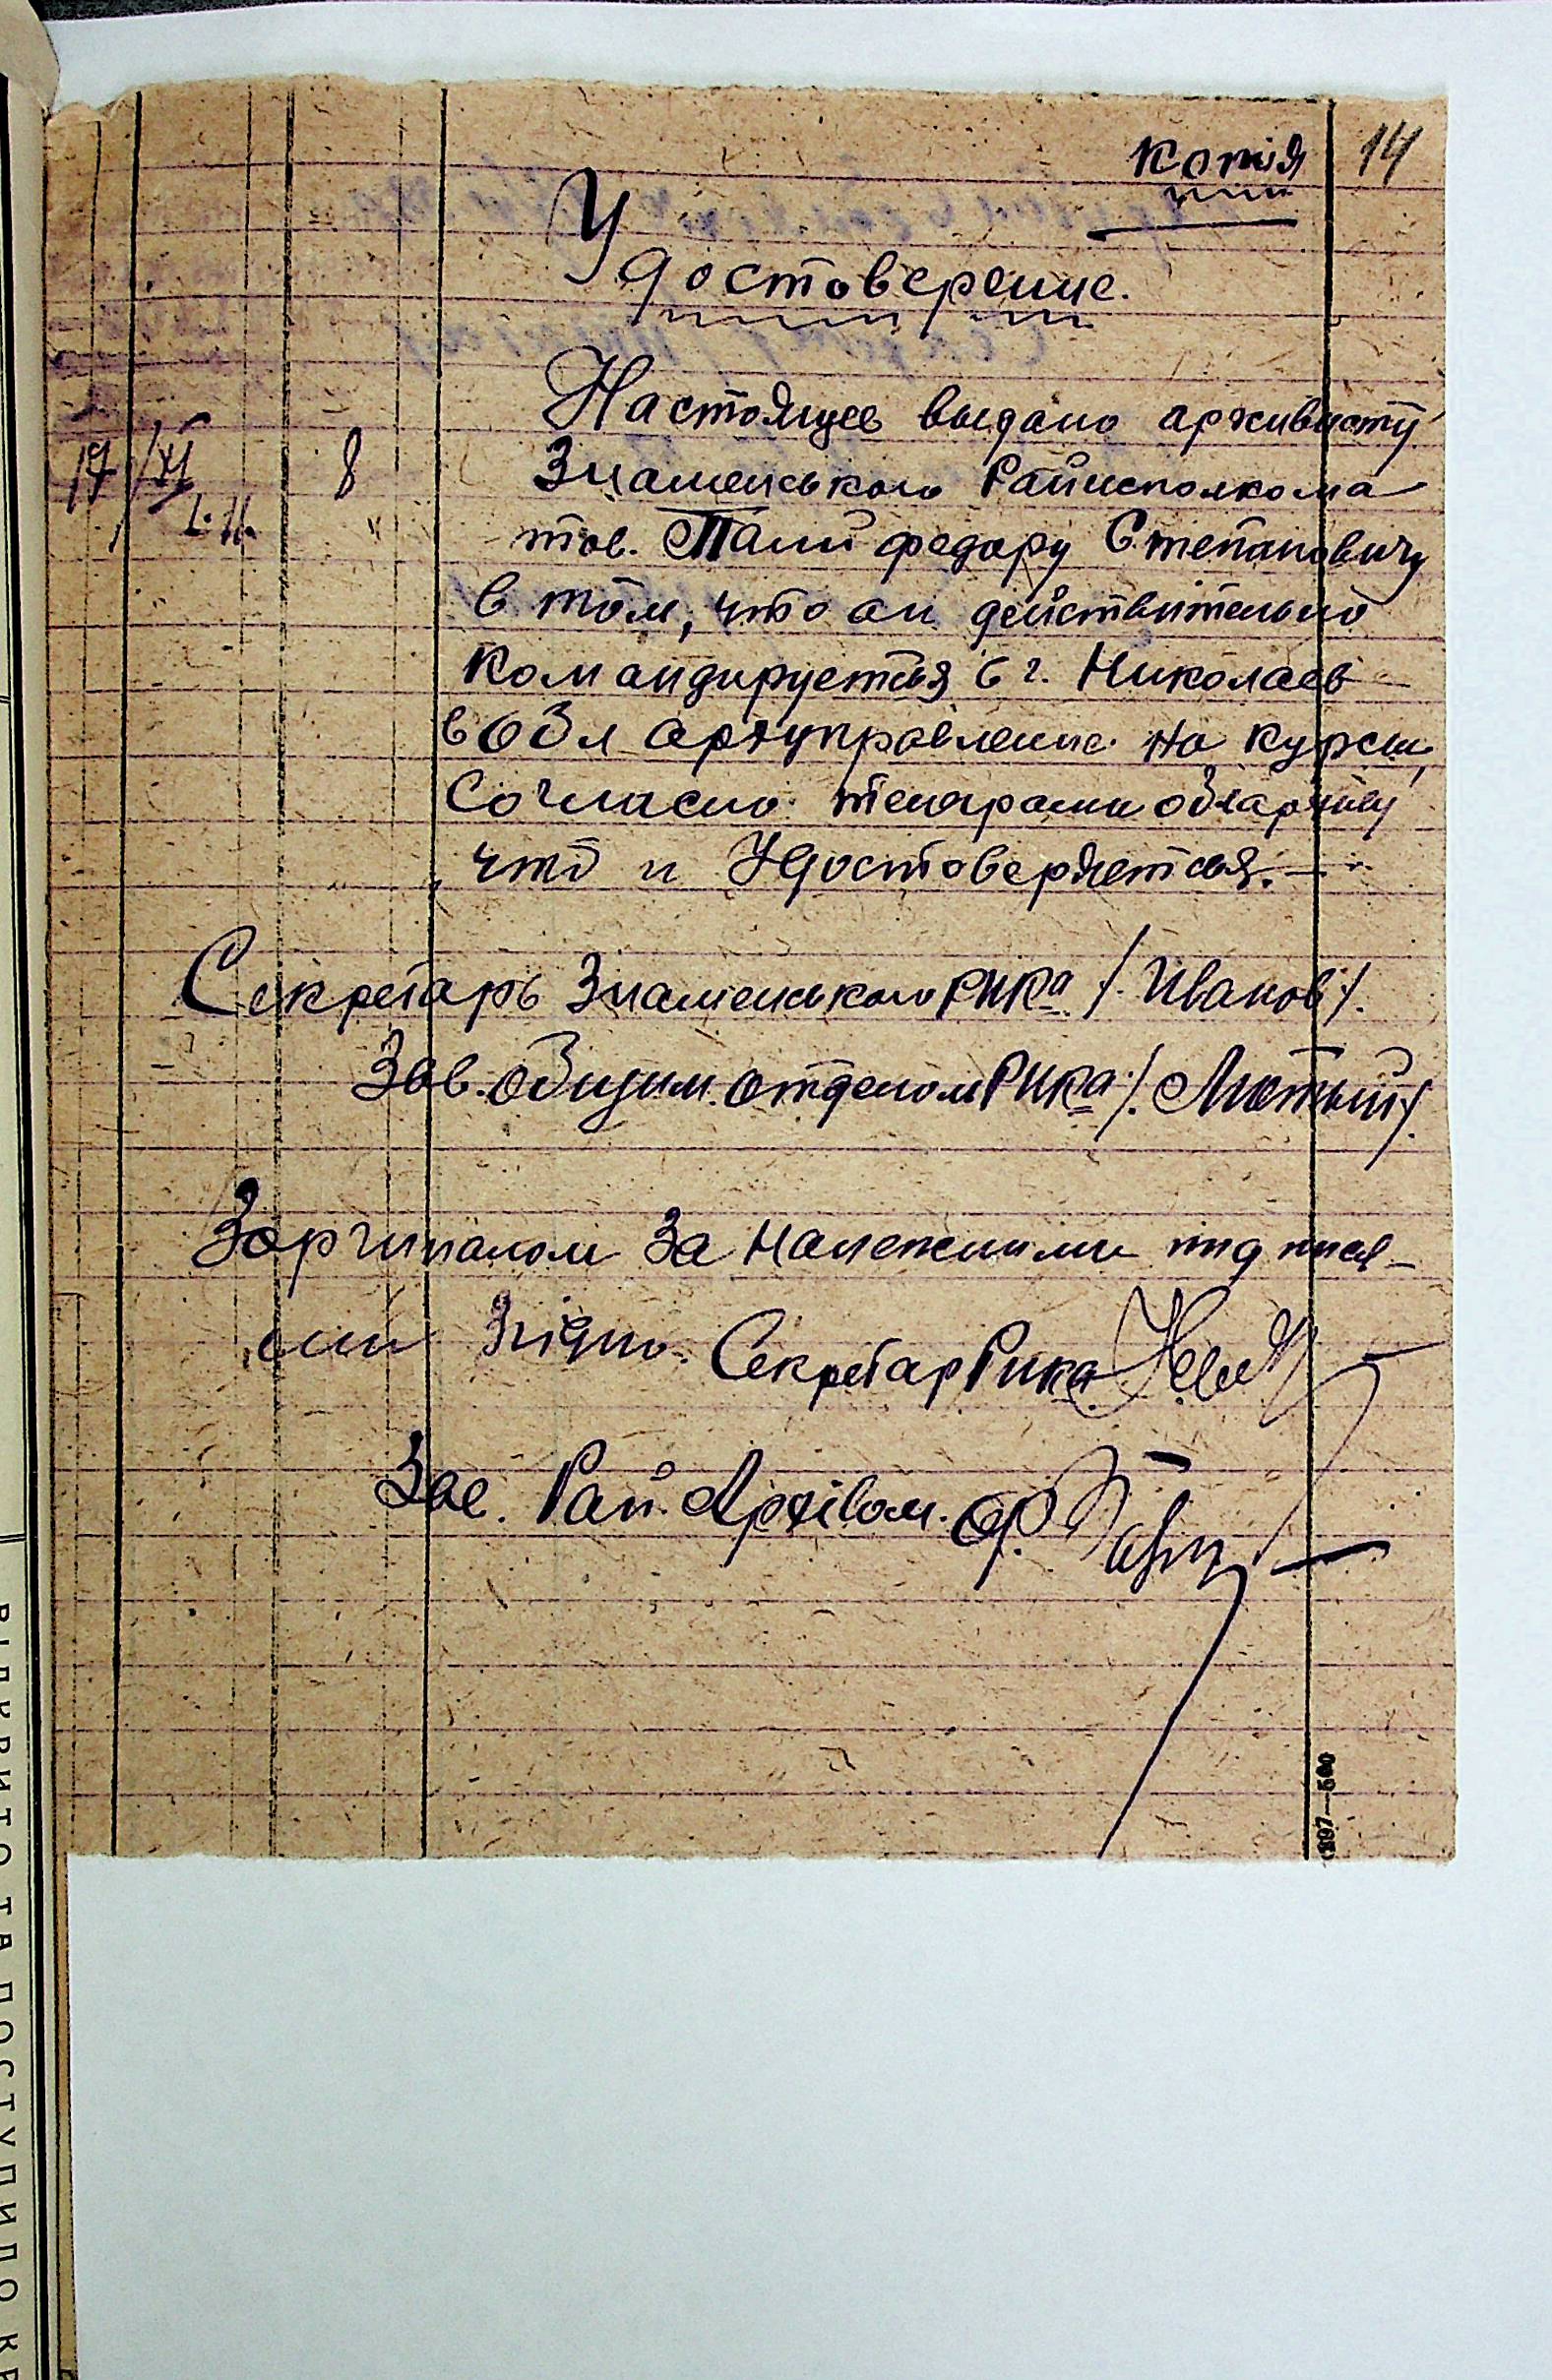 копія 14
Удостоверение.
Настоящее выдано архивисту
17/XI 8 Знаменського Райисполкома
тов. Палий федору Степановичу
в том, что он действительно
командируеться в г. Николаев
в Обл архуправление на курсы,
Согласно телеграми облархиву
что и Удостоверяеться.
Секретарь Знаменського РИКа /. Иванов/.
Зав. общим отделом РИКа /. Лютый/.
З оргиналом за належними підпися-
ми Згідно. Секретар Рика
Зав. Рай. Архівом. Ф.
897—500
ВІДКРИТО ТА ДОСТУПНО